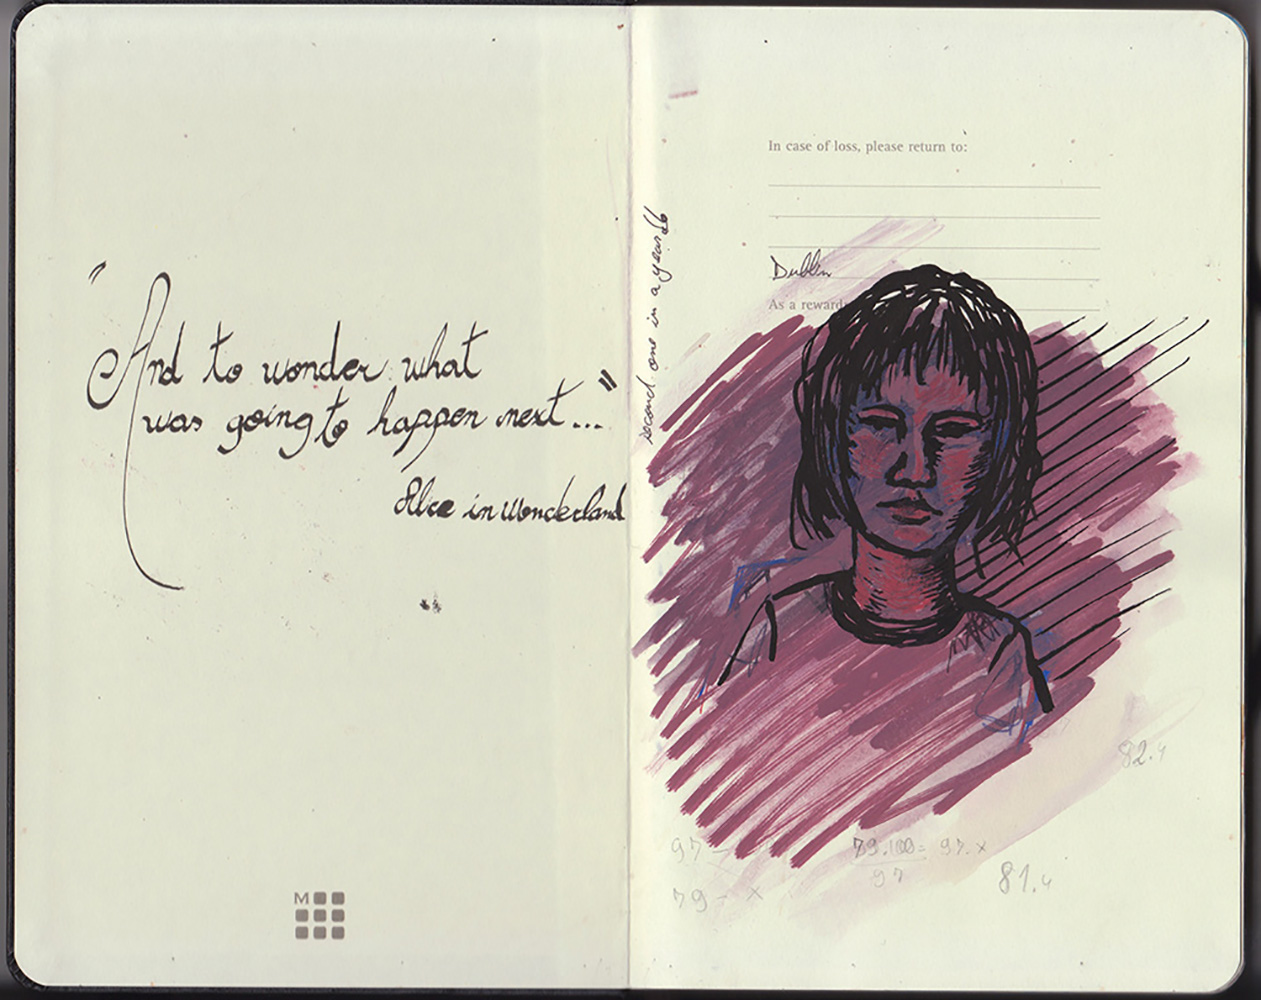 "And to wonder what
was going to happen next..."
Alice in Wonderland
M
second one in a year
In case of loss, please return to:
Dublin
As a reward
82.4
97 -
79 - x
79.100 = 97.x
97
81.4